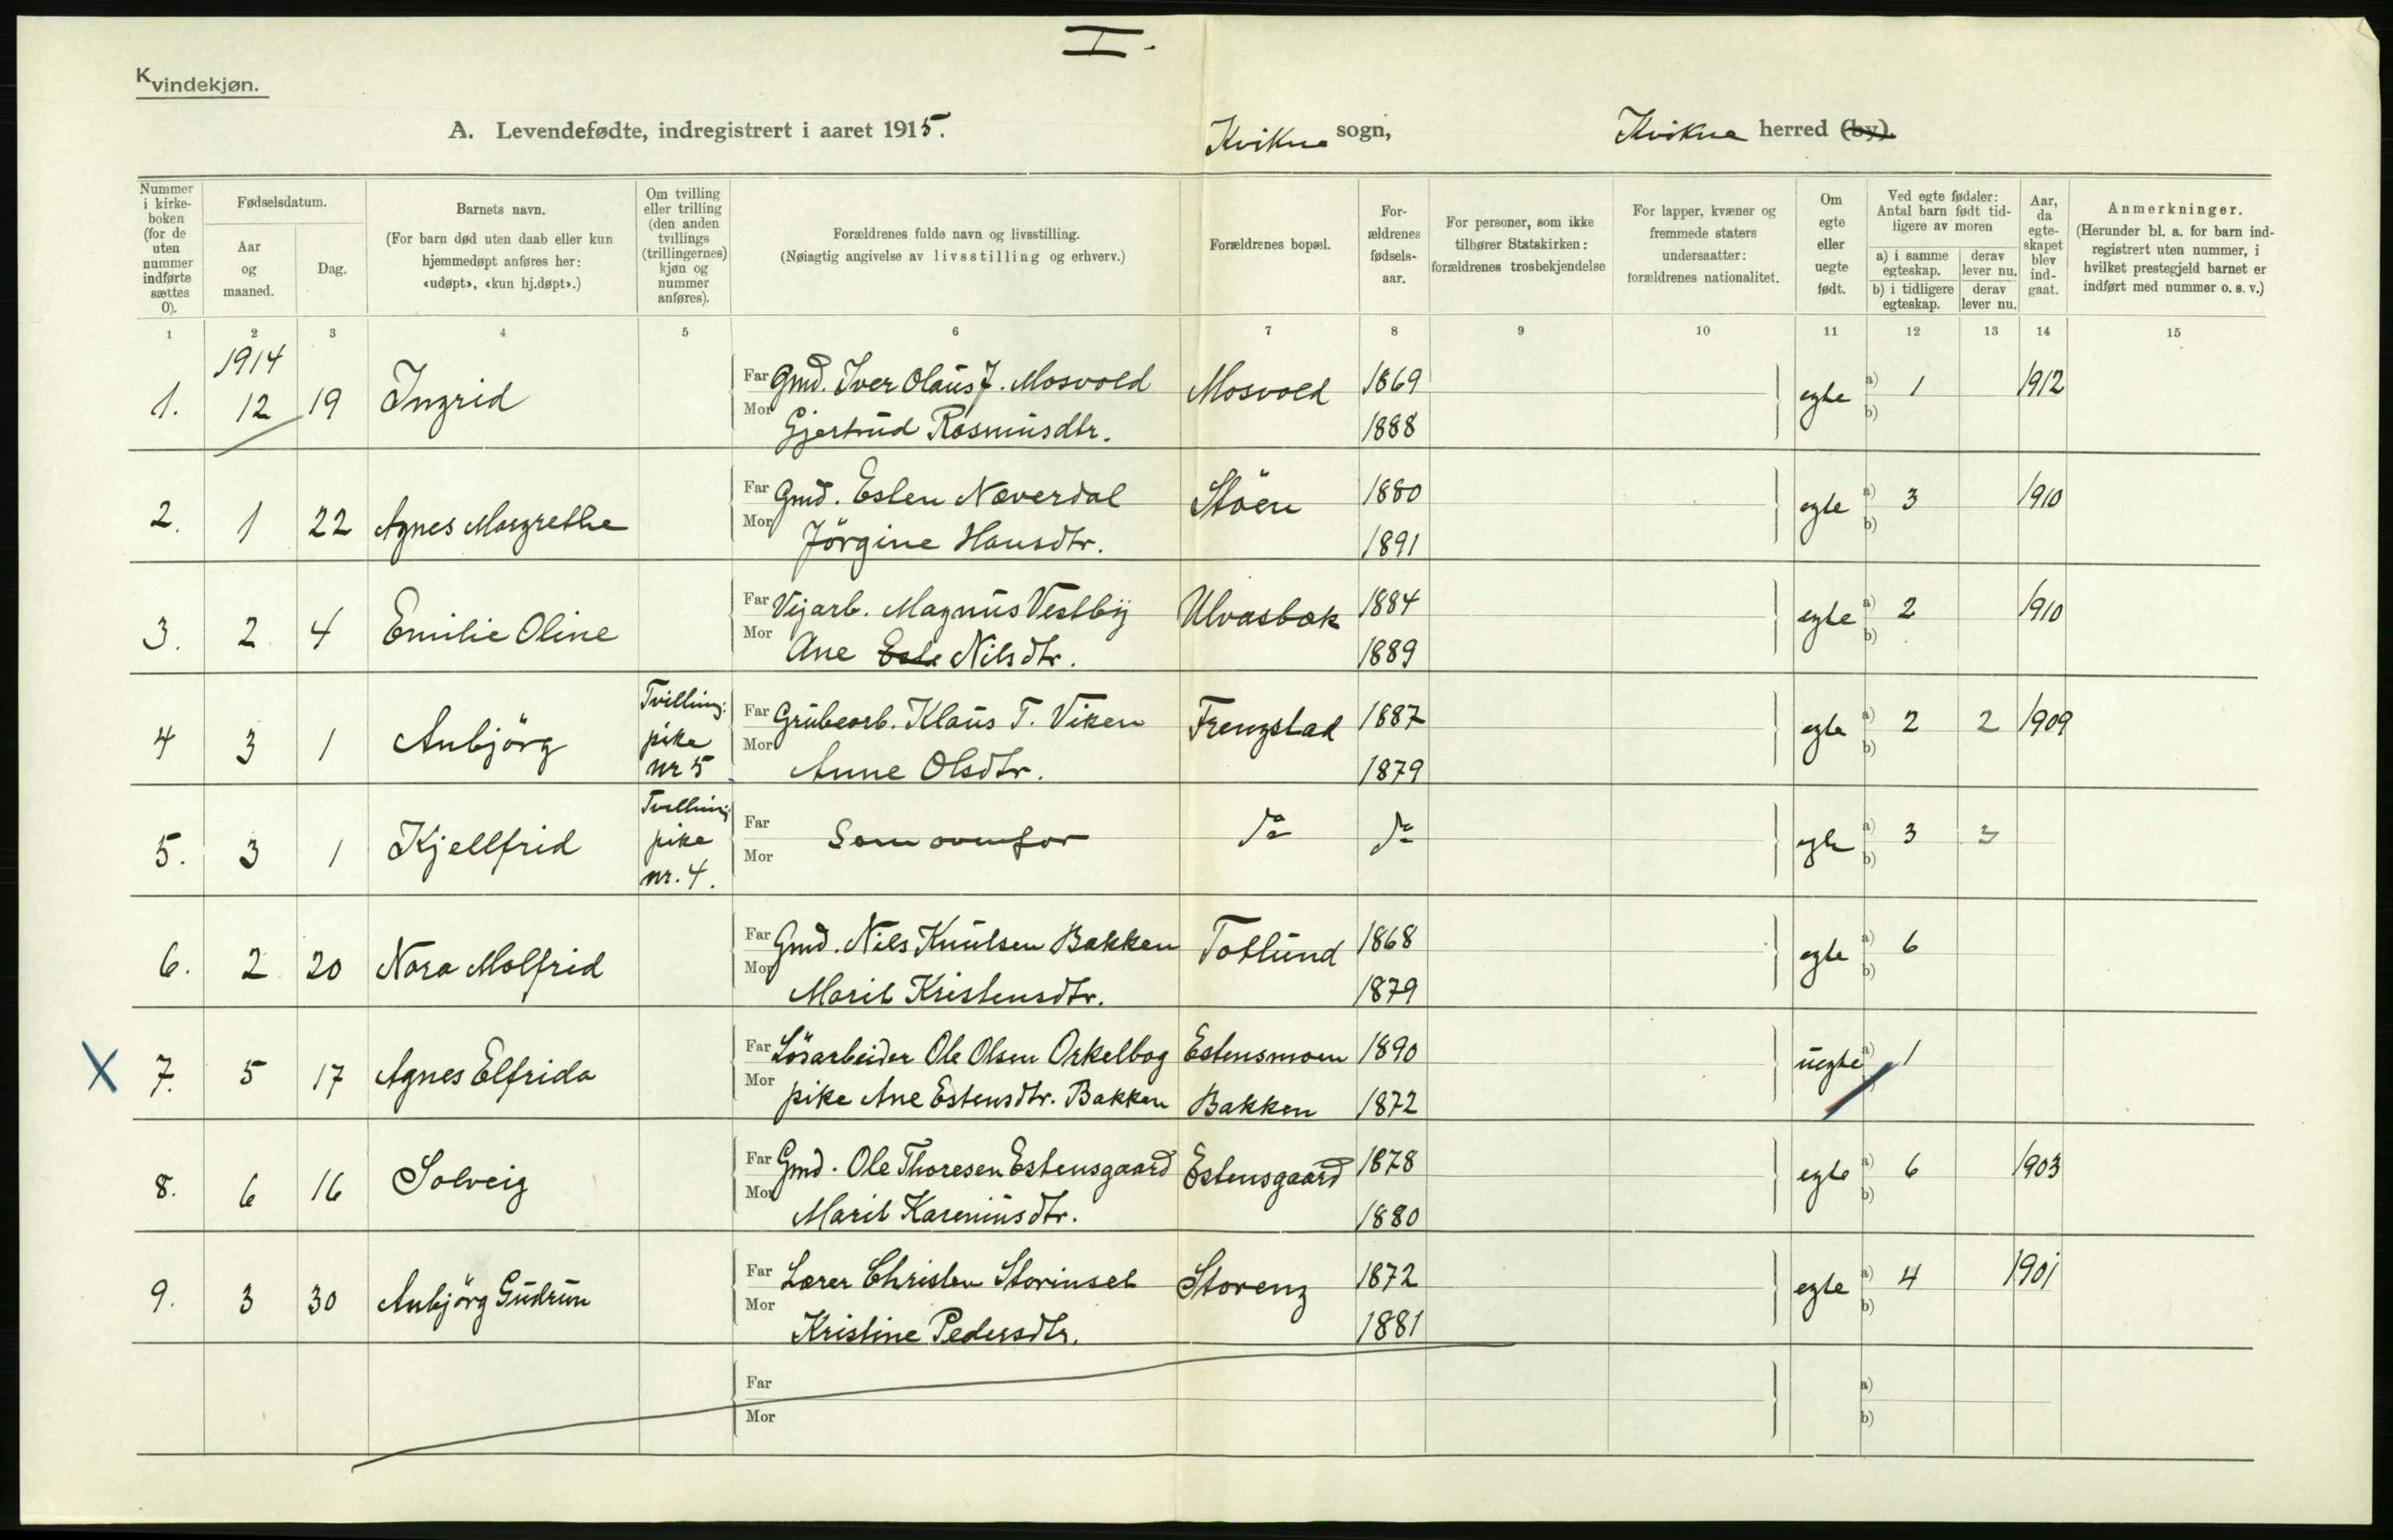 I.
Kvindekjøn.
A. Levendefødte, indregistrert i aaret 1915. Kvikne sogn, Kvikne herred (by).
Nummer i kirkeboken (for de uten nummer indførte sættes 0).
Fødselsdatum.
Aar og maaned.
Dag.
Barnets navn.
(For barn død uten daab eller kun hjemmedøpt anføres her: «udøpt», «kun hj.døpt».)
Om tvilling eller trilling (den anden tvillings (trillingernes) kjøn og nummer anføres).
Forældrenes fulde navn og livsstilling.
(Nøiagtig angivelse av livsstilling og erhverv.)
Forældrenes bopæl.
Forældrenes fødselsaar.
For personer, som ikke tilhører Statskirken: forældrenes trosbekjendelse
For lapper, kvæner og fremmede staters undersaatter: forældrenes nationalitet.
Om egte eller uegte født.
Ved egte fødsler: Antal barn født tidligere av moren
a) i samme egteskap. derav lever nu.
b) i tidligere egteskap. derav lever nu.
Aar, da egteskapet blev indgaat.
Anmerkninger.
(Herunder bl. a. for barn indregistrert uten nummer, i hvilket prestegjeld barnet er indført med nummer o. s. v.)
1 2 3 4 5 6 7 8 9 10 11 12 13 14 15
1914
1. 12 19 Ingrid Far Gmd. Iver Olaus J. Mosvold Mosvold 1869 egte a) 1 1912
Mor Gjertrud Rasmusdtr. 1888 b)
2. 1 22 Agnes Margrethe Far Gmd. Esten Næverdal Støen 1880 egte a) 3 1910
Mor Jörgine Hansdtr. 1891 b)
3. 2 4 Emilie Oline Far Vejarb. Magnus Vestby Ulvasbak 1884 egte a) 2 1910
Mor Ane Este Nilsdtr. 1889 b)
4 3 1 Anbjörg Tvilling: pike nr 5 Far Grubearb. Klaus T. Viken Frengstad 1887 egte a) 2 2 1909
Mor Anne Olsdtr. 1879 b)
5. 3 1 Kjellfrid Tvilling: pike nr. 4. Far Som ovenfor do do egte a) 3 3
Mor b)
6. 2 20 Nora Molfrid Far Gmd. Nils Knutsen Bakken Totlund 1868 egte a) 6
Mor Marit Kristensdtr. 1879 b)
X 7. 5 17 Agnes Elfrida Far Lösarbeider Ole Olsen Orkelbog Estensmoen 1890 uegte a) 1
Mor pike Ane Estensdtr. Bakken Bakken 1872
8. 6 16 Solveig Far Gmd. Ole Thoresen Estensgaard Estensgaard 1878 egte a) 6 1903
Mor Marit Kareniusdtr. 1880 b)
9. 3 30 Anbjörg Gudrun Far Lærer Christen Storinset Storeng 1872 egte a) 4 1901
Mor Kristine Pedersdtr. 1881 b)
Far a)
Mor b)